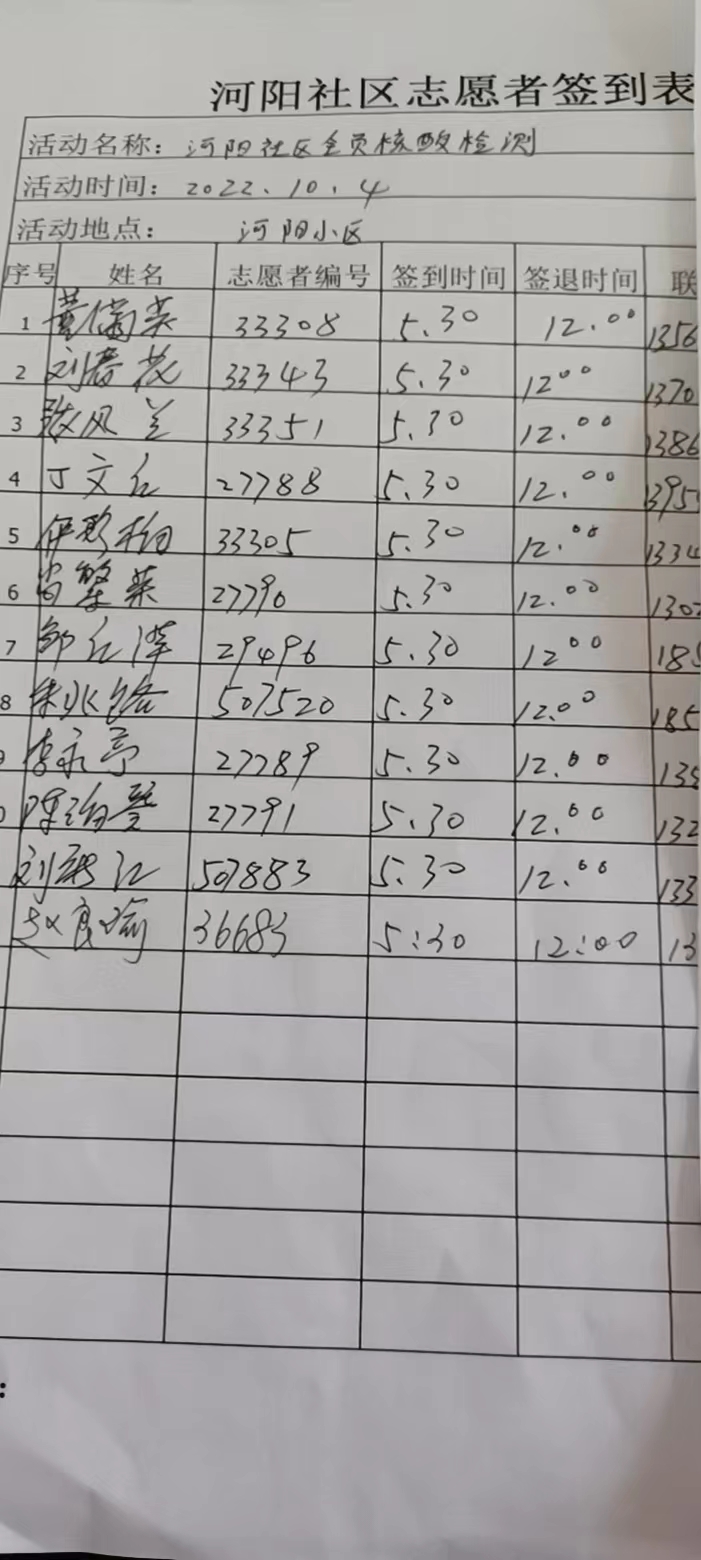 河阳社区志愿者签到表
活动名称: 河阳社区全员核酸检测
活动时间: 2022.10.4
活动地点: 河阳小区
序号 姓名 志愿者编号 签到时间 签退时间 联
1 33308 5.30 12.00 1356
2 刘春花 33343 5.30 12.00 1370
3 张风兰 33351 5.30 12.00 1386
4 丁文红 27788 5.30 12.00 1395
5 33305 5.30 12.00 1334
6 27790 5.30 12.00 1302
7 邹红泽 29496 5.30 12.00 185
8 507520 5.30 12.00 185
9 李永亭 27789 5.30 12.00 135
0 27791 5.30 12.00 132
507883 5.30 12.00 133
36683 5:30 12:00 13
: